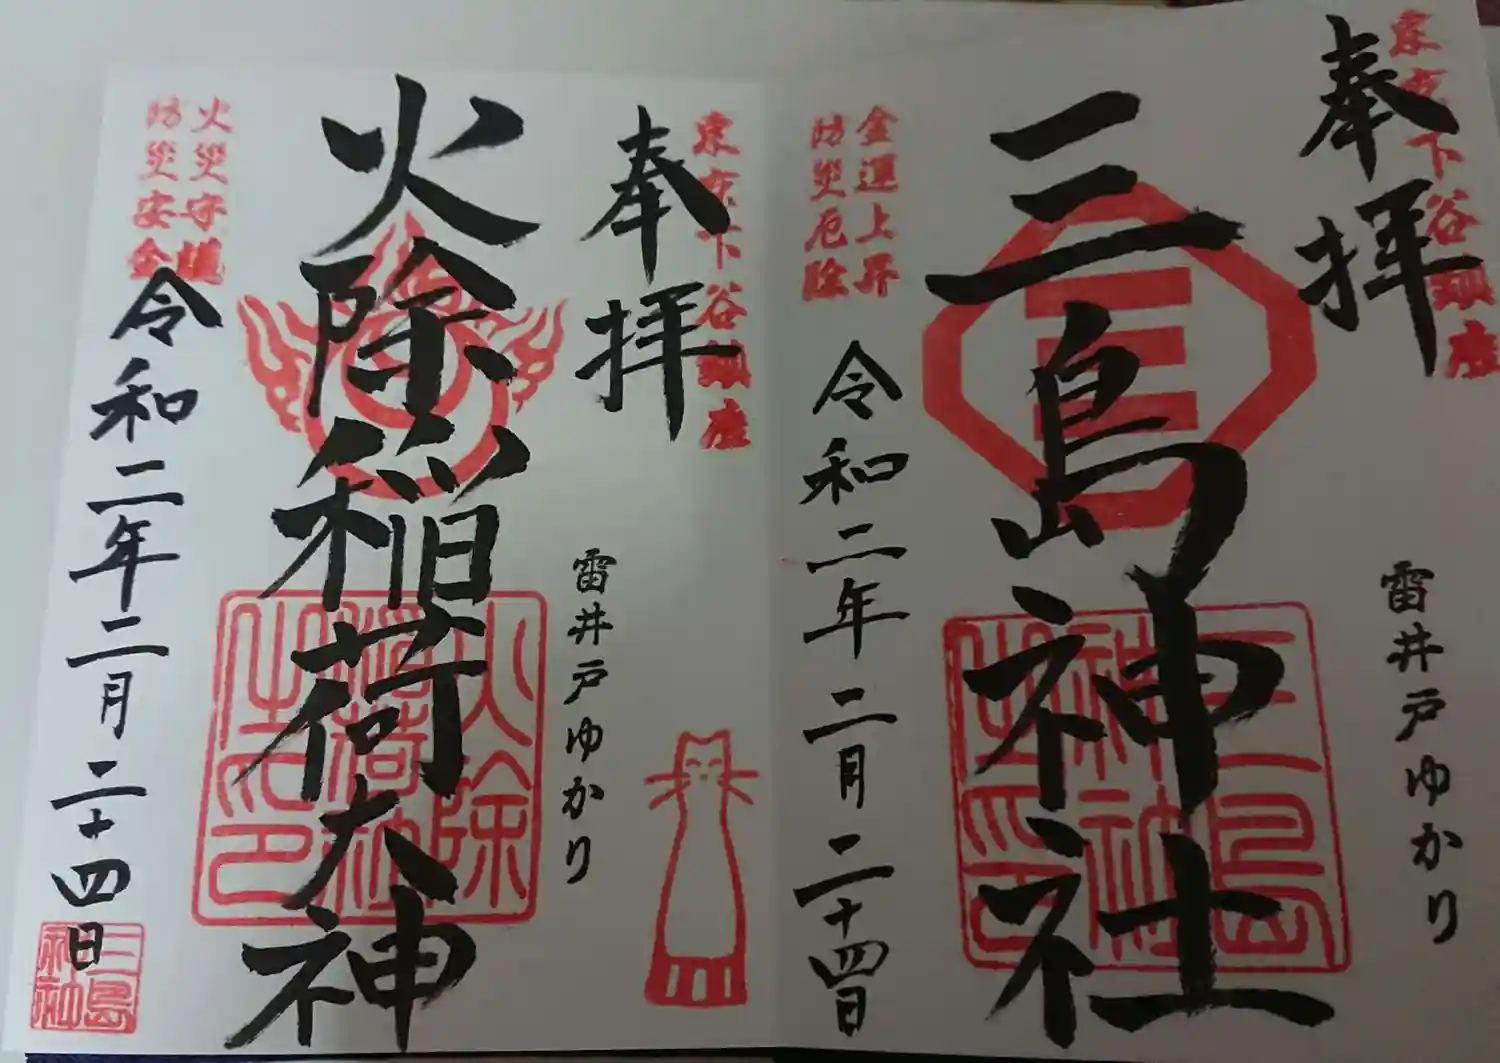 東京下谷鎮座
奉拝
三島神社
雷井戸ゆかり
金運上昇
防災厄除
令和二年二月二十四日
三島
神社
之印
東京下谷鎮座
奉拝
火除稲荷大神
雷井戸ゆかり
火災守護
防災安全
令和二年二月二十四日
火除
稲荷社
之印
三島
神社